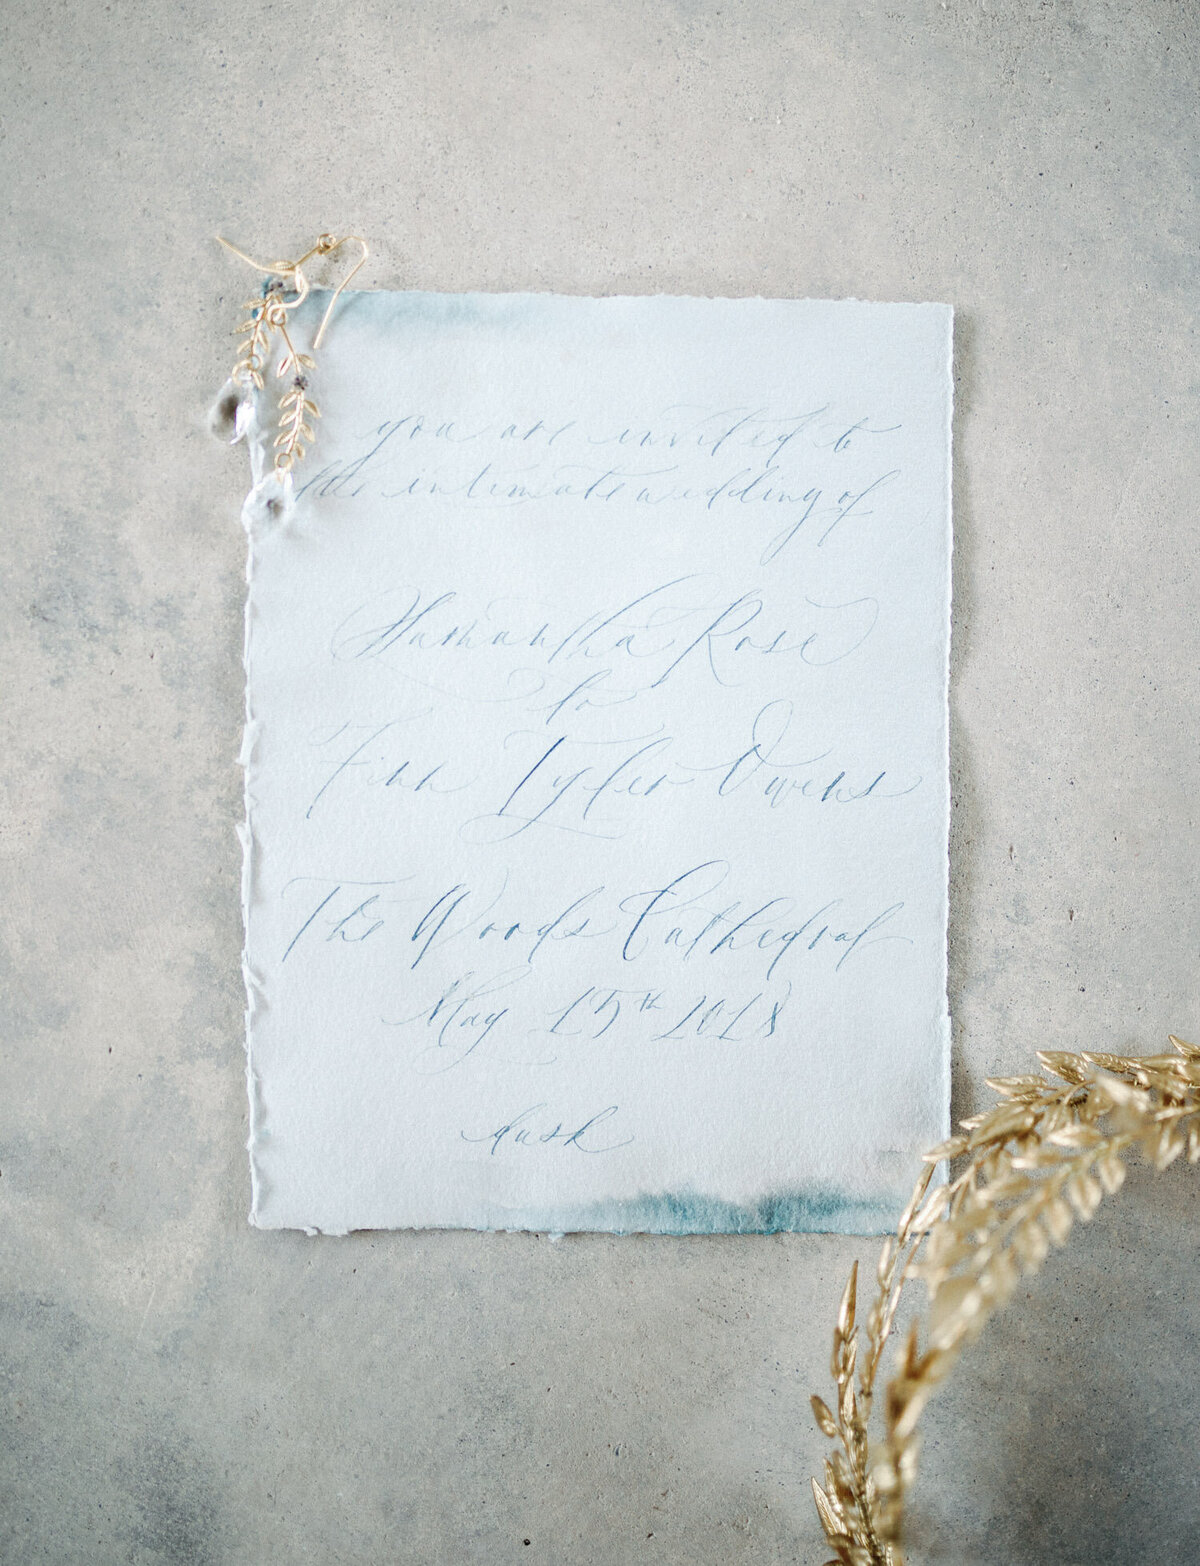 you are invited to
the intimate wedding of
Samantha Rose
to
Finn Tyler Owens
The Woods Cathedral
May 15th 2018
dusk